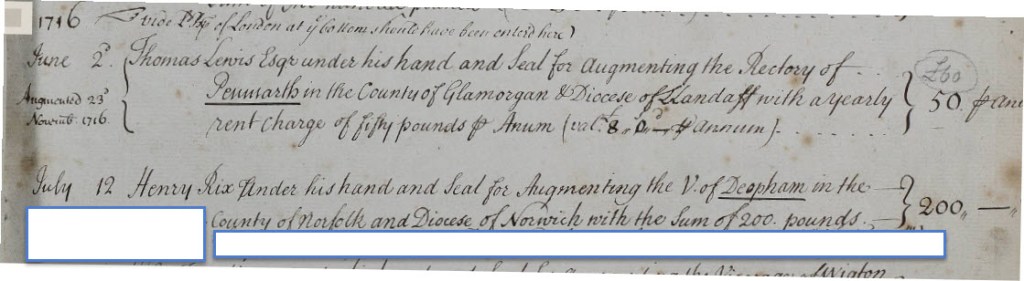 1716 (vide Bp of London at ye bottom should have been enterd here)
June 2d. Thomas Lewis Esqr under his hand and Seal for Augmenting the Rectory of . . .
Augmented 23d Pennarth in the County of Glamorgan & Diocese of Llandaff with a yearly £60 50. p ann
Novemb. 1716. rent Charge of fifty pounds p Anum (val. 8 . 0 — p annum).
July 12 Henry Rix Under his hand and Seal for Augmenting the V. of Deopham in the
County of Norfolk and Diocese of Norwich with the Sum of 200. pounds. 200,, — ,,
the Vicarage of Wigton